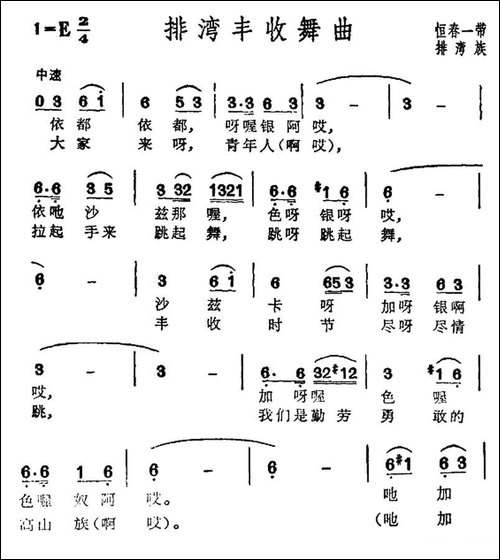 排湾丰收舞曲
1=E 2/4
恒春一带
排湾族
中速
0 3 6 i | 6 5 3 | 3·3 6 6 | 3 - | 3 - |
依都 依都, 呀喔银阿哎,
大家 来呀, 青年人(啊哎),
6·6 3 5 | 3 32 1321 | 6·6 #1 6 | 6 -
依吔沙 兹那喔, 色呀银呀哎,
拉起手来跳起舞, 跳呀跳起舞,
6 - | 3 6 i | 6 653 | 3·3 6 3
沙兹卡呀 加呀银啊
丰收时节 尽呀尽情
3 - | 3 - | 6·6 32#12 | 3 #1 6
哎, 加呀喔色喔
跳, 我们是勤劳勇敢的
6·6 1 6 | 6 - | 6 - | 6#1 6 3
色喔奴阿哎。 吔加
高山族(啊哎)。 (吔加